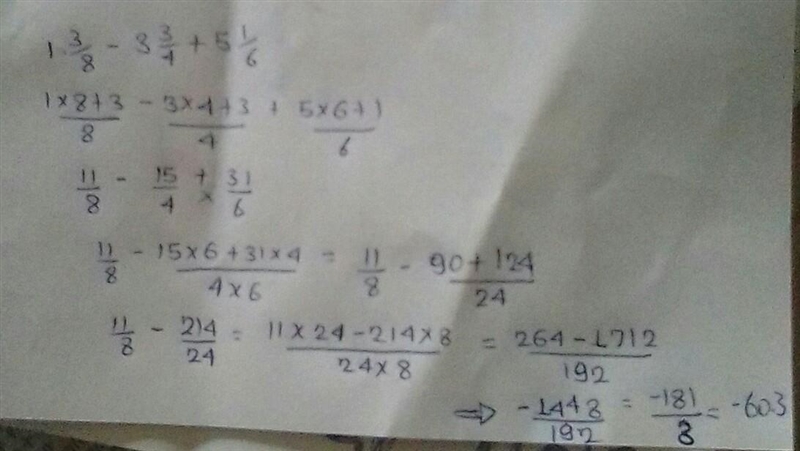 1 3/8 - 3 3/4 + 5 1/6
1×8+3/8 - 3×4+3/4 + 5×6+1/6
11/8 - 15/4 +× 31/6
11/8 - 15×6+31×4/4×6 = 11/8 - 90+124/24
11/8 - 214/24 = 11×24-214×8/24×8 = 264-1712/192
⇒ -1448/192 = -181/3 = -60.3